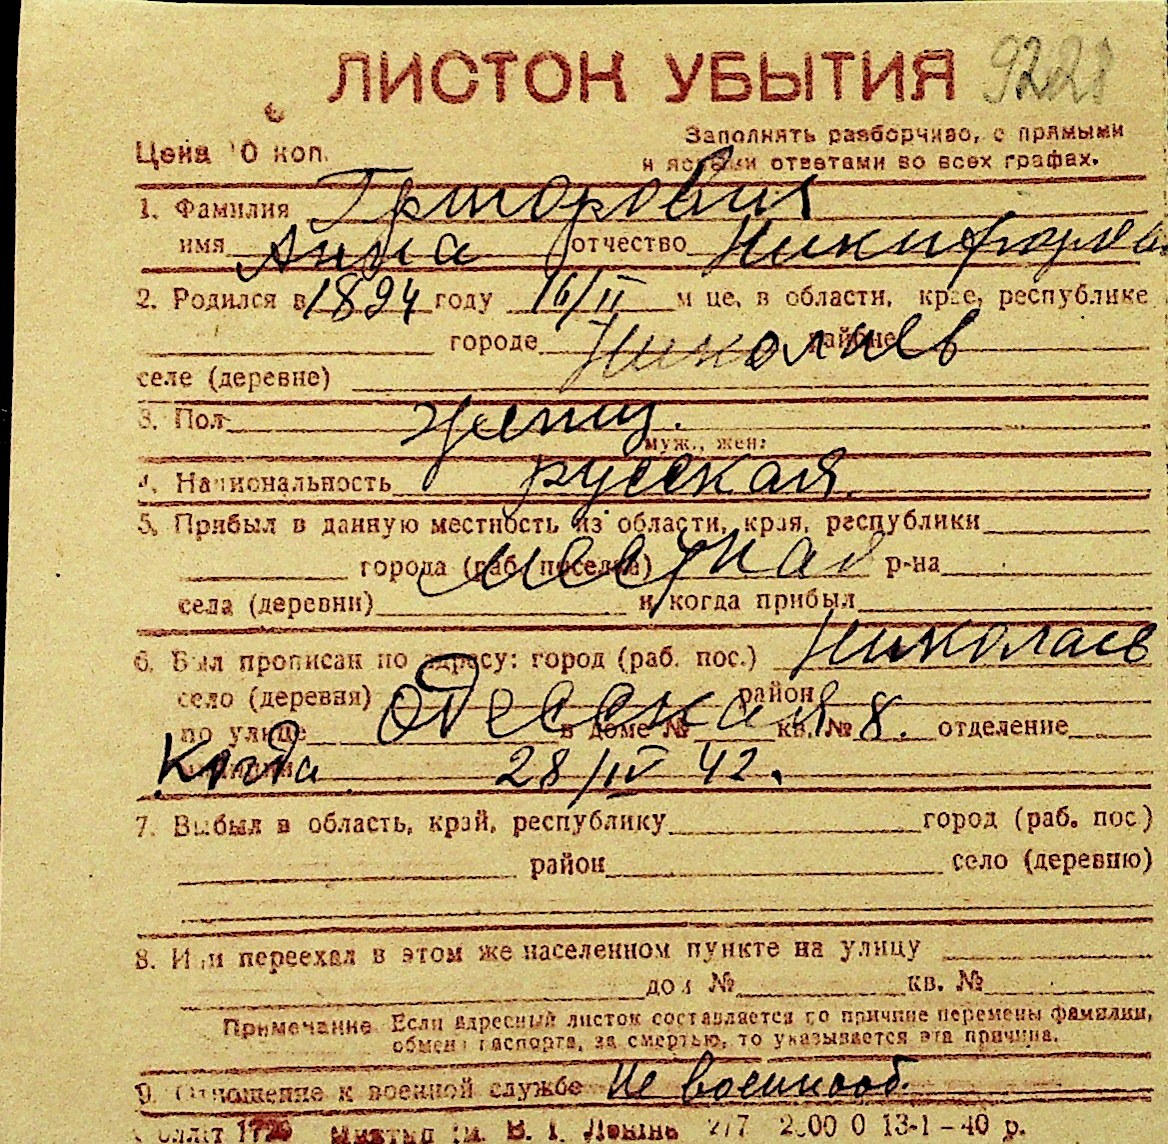 ЛИСТОК УБЫТИЯ 9228
Цена 10 коп.
Заполнять разборчиво, с прямыми
и ясными ответами во всех графах.
1. Фамилия Григорович
имя Анна отчество Никифоровна
2. Родился в 1894 году 16/II м-це, в области, крае, республике
городе Николаев районе
селе (деревне)
3. Пол женщ.
муж., жен.
4. Национальность русская.
5. Прибыл в данную местность из области, края, республики
города (раб. поселка) местная р-на
села (деревни) и когда прибыл
6. Был прописан по адресу: город (раб. пос.) Николаев
село (деревня) район
по улице Одесская в доме № кв. № 8. отделение
Когда 28/IV 42.
7. Выбыл в область, край, республику город (раб. пос.)
район село (деревню)
8. Или переехал в этом же населенном пункте на улицу
дом № кв. №
Примечание. Если адресный листок составляется по причине перемены фамилии,
обмена паспорта, за смертью, то указывается эта причина.
9. Отношение к военной службе Не военнооб.
В. І. Леніна 2/7 2000 0 13-1-40 р.